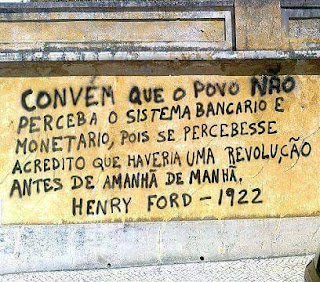 CONVEM QUE O POVO NÃO
PERCEBA O SISTEMA BANCARIO E
MONETARIO, POIS SE PERCEBESSE
ACREDITO QUE HAVERIA UMA REVOLUÇÃO
ANTES DE AMANHÃ DE MANHÃ.
HENRY FORD - 1922